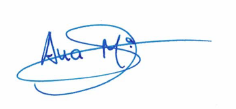 Ana Mª